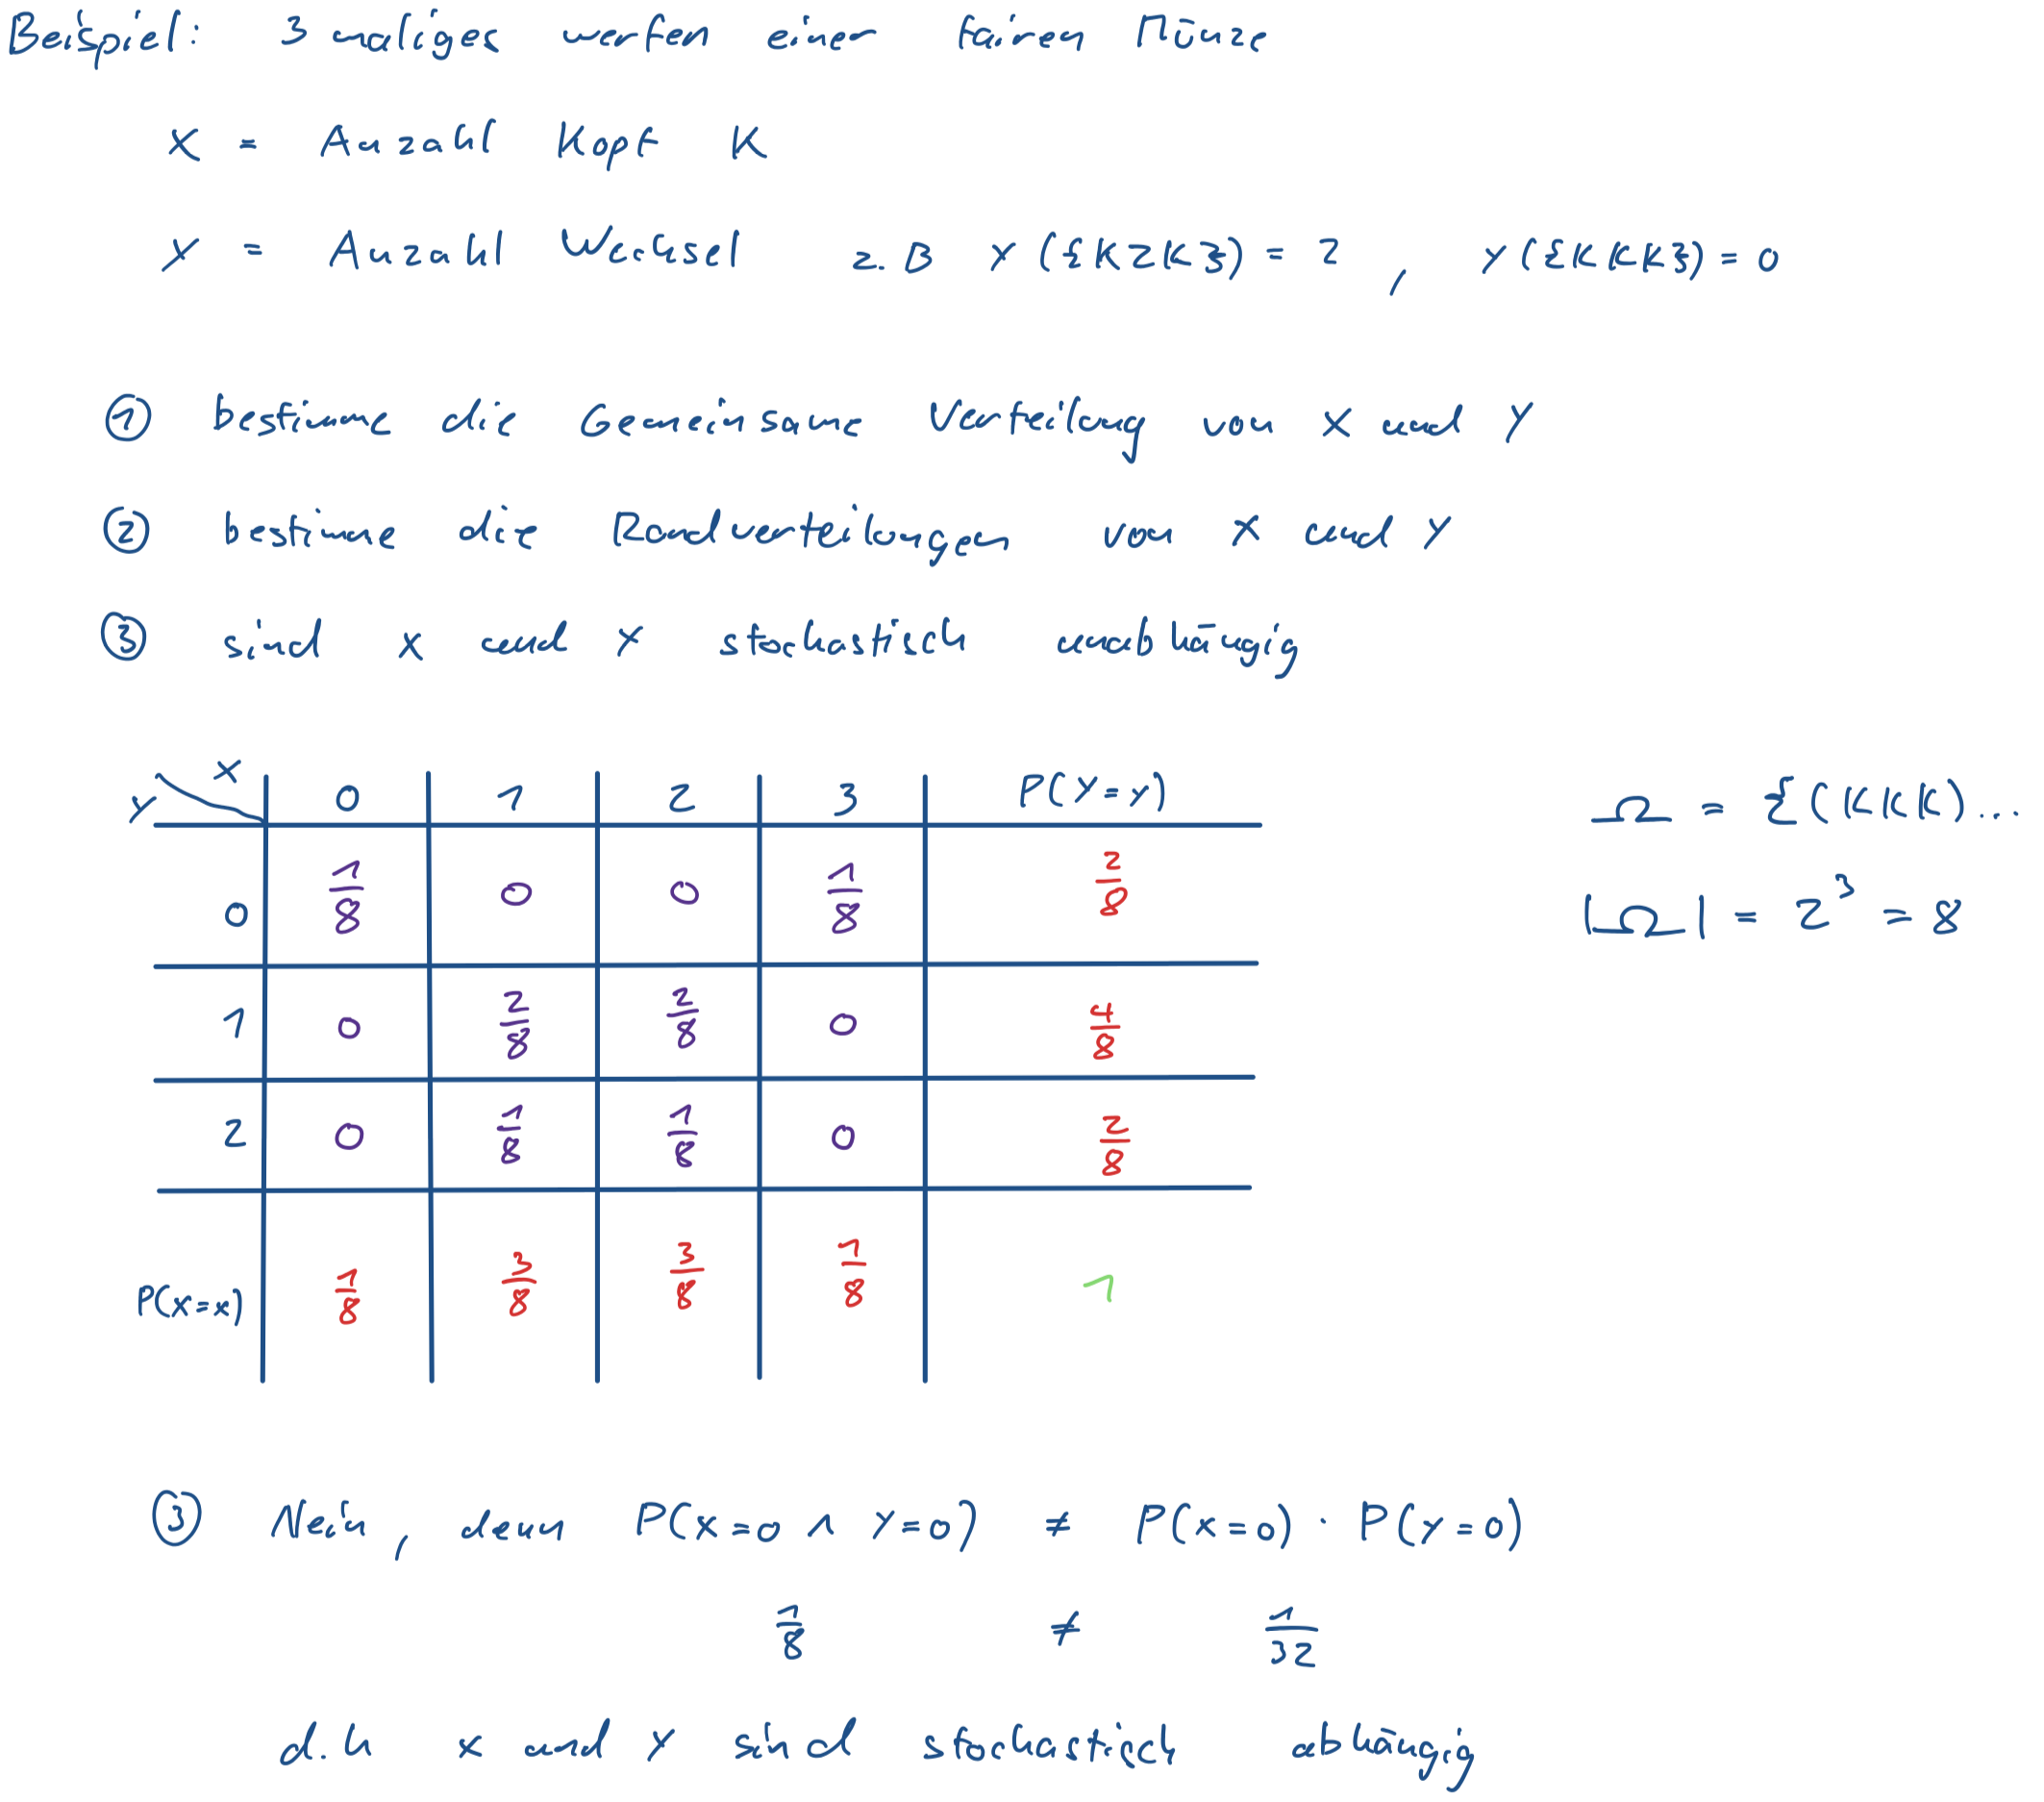 Beispiel: 3 maliges werfen einer fairen Münze
X = Anzahl Kopf K
Y = Anzahl Wechsel z.B Y({KZK}) = 2, Y({KKK}) = 0
① bestimme die Gemeinsame Verteilung von X und Y
② bestimme die Randverteilungen von X und Y
③ sind X und Y stochastisch unabhängig
Y \ X 0 1 2 3 P(Y=y)
0 1/8 0 0 1/8 2/8
1 0 2/8 2/8 0 4/8
2 0 1/8 1/8 0 2/8
P(X=x) 1/8 3/8 3/8 1/8 1
Ω = {(KKK)...
|Ω| = 2³ = 8
③ Nein, denn P(X=0 ∧ Y=0) ≠ P(X=0) · P(Y=0)
1/8 ≠ 1/32
d.h X und Y sind stochastisch abhängig